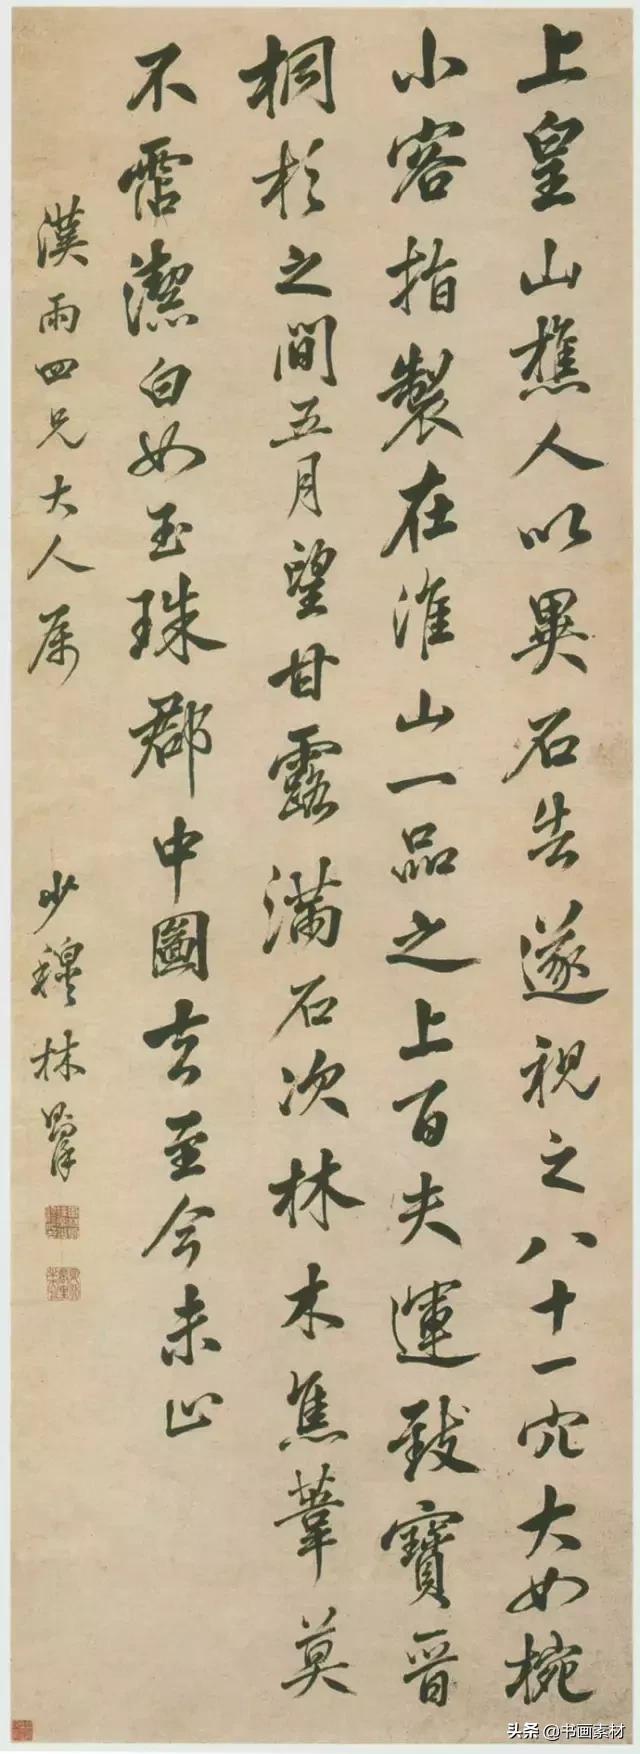 上皇山樵人以異石告遂視之八十一穴大如椀
小容指製在淮山一品之上百夫運致寶晉
桐杉之間五月望甘露滿石次林木焦葦莫
不霑潔白如玉珠郡中圖去至今未止
漢雨四兄大人属
少穆林則徐
头条 @书画素材